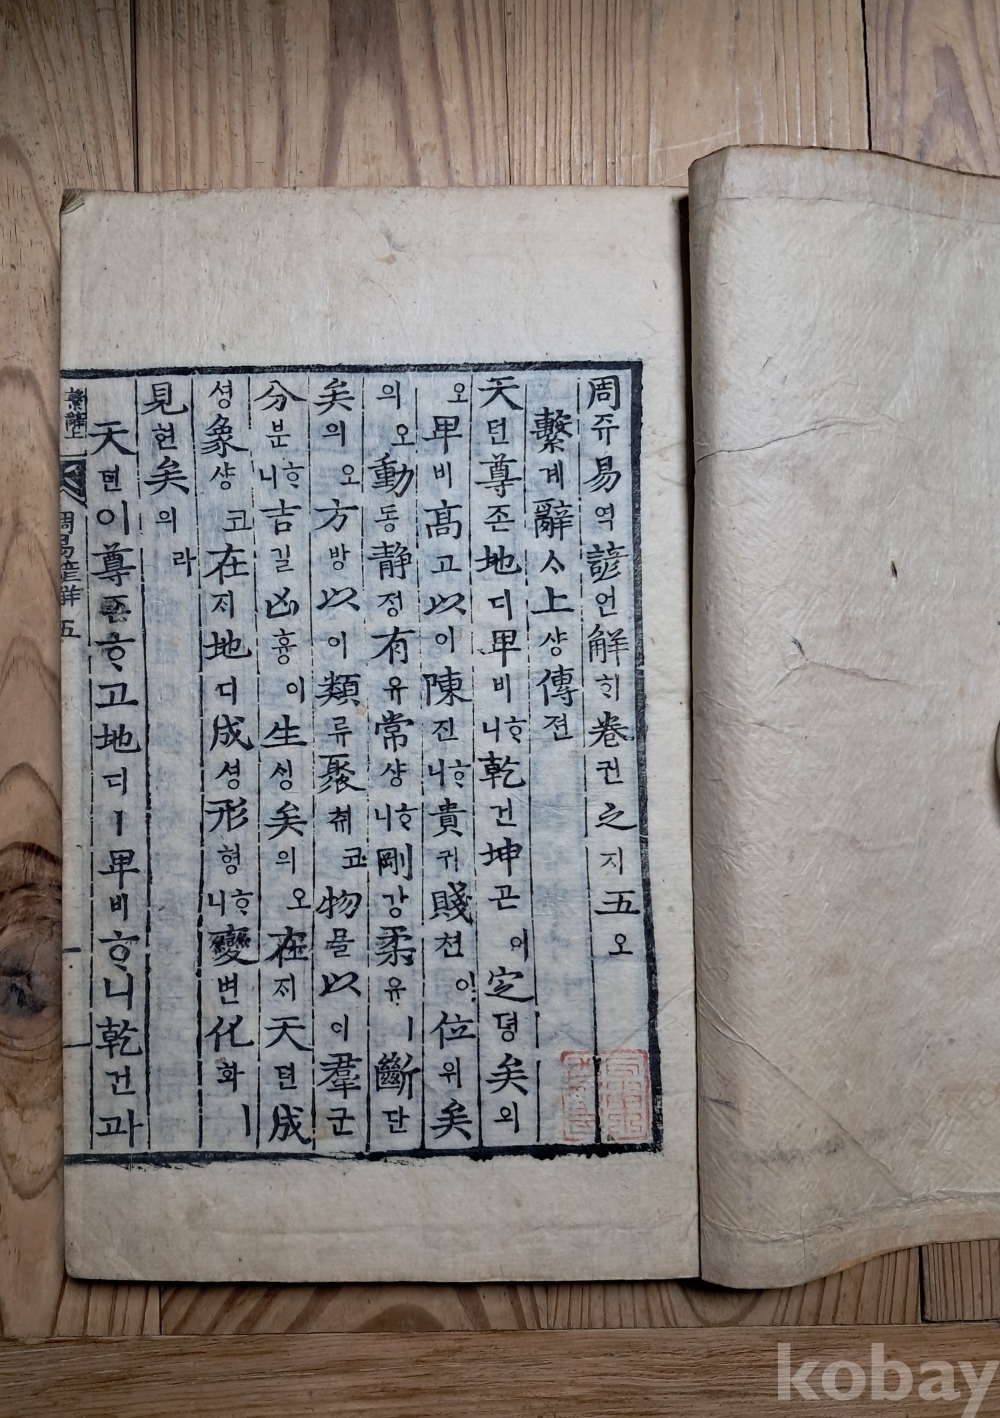 周쥬易역諺언解ᄒᆡ卷권之지五오
繫계辭ᄉᆞ上샹傳젼
天텬尊존地디卑비ᄒᆞ니乾건坤곤이定뎡矣의
오卑비高고以이陳진ᄒᆞ니貴귀賤쳔이位위矣
의오動동靜졍有유常샹ᄒᆞ니剛강柔유ㅣ斷단
矣의오方방以이類류聚췌코物믈以이羣군
分분ᄒᆞ니吉길凶흉이生ᄉᆡᆼ矣의오在ᄌᆡ天텬成
셩象샹코在ᄌᆡ地디成셩形형ᄒᆞ니變변化화ㅣ
見현矣의라
天텬이尊존ᄒᆞ고地디ㅣ卑비ᄒᆞ니乾건과
繫辭上
周易諺解 五
kobay